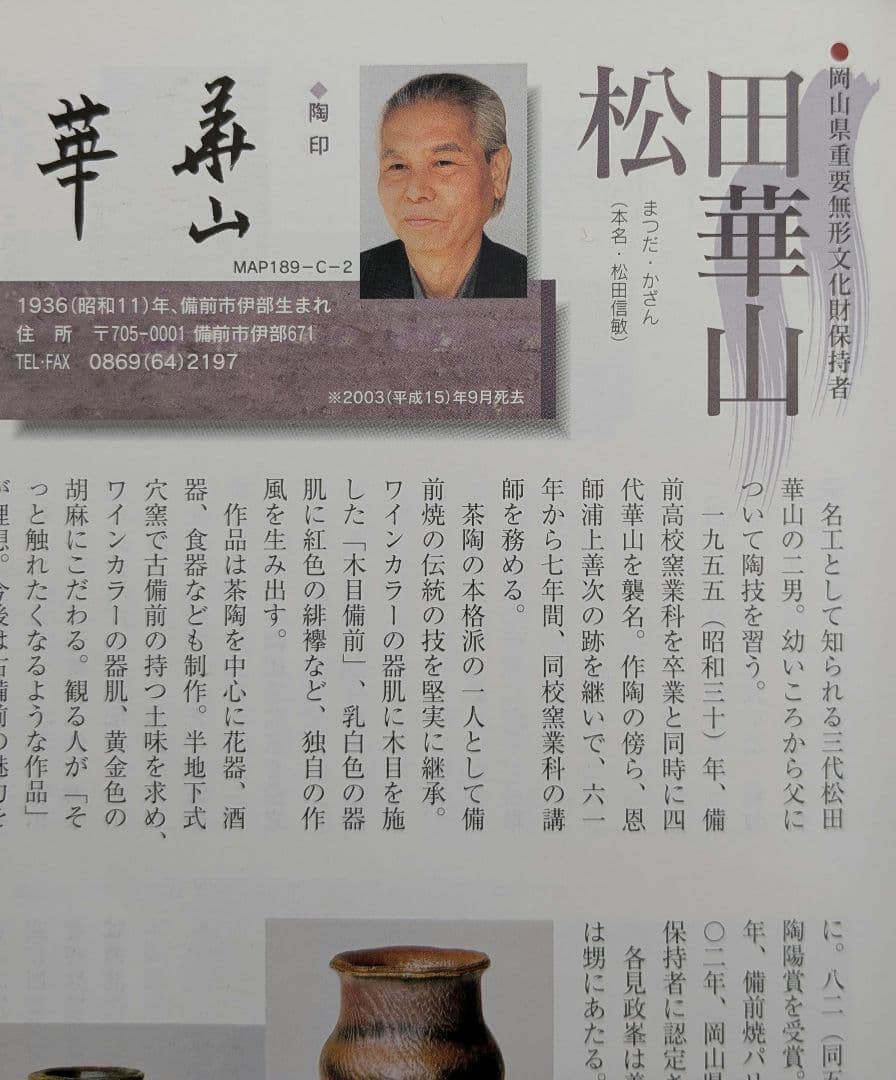 岡山県重要無形文化財保持者
松田華山
まつだ・かざん
（本名・松田信敏）
◆陶印
華山
華
MAP189-C-2
1936（昭和11）年、備前市伊部生まれ
住　所　〒705-0001 備前市伊部671
TEL・FAX　0869（64）2197
※2003（平成15）年9月死去
名工として知られる三代松田
華山の二男。幼いころから父に
ついて陶技を習う。
一九五五（昭和三十）年、備
前高校窯業科を卒業と同時に四
代華山を襲名。作陶の傍ら、恩
師浦上善次の跡を継いで、六一
年から七年間、同校窯業科の講
師を務める。
茶陶の本格派の一人として備
前焼の伝統の技を堅実に継承。
ワインカラーの器肌に木目を施
した「木目備前」、乳白色の器
肌に紅色の緋襷など、独自の作
風を生み出す。
作品は茶陶を中心に花器、酒
器、食器なども制作。半地下式
穴窯で古備前の持つ土味を求め、
ワインカラーの器肌、黄金色の
胡麻にこだわる。観る人が「そ
っと触れたくなるような作品」
が理想。今後は古備前の魅力を
に。八二（同五
陶陽賞を受賞。
年、備前焼パリ
〇二年、岡山県
保持者に認定さ
各見政峯は義
は甥にあたる。